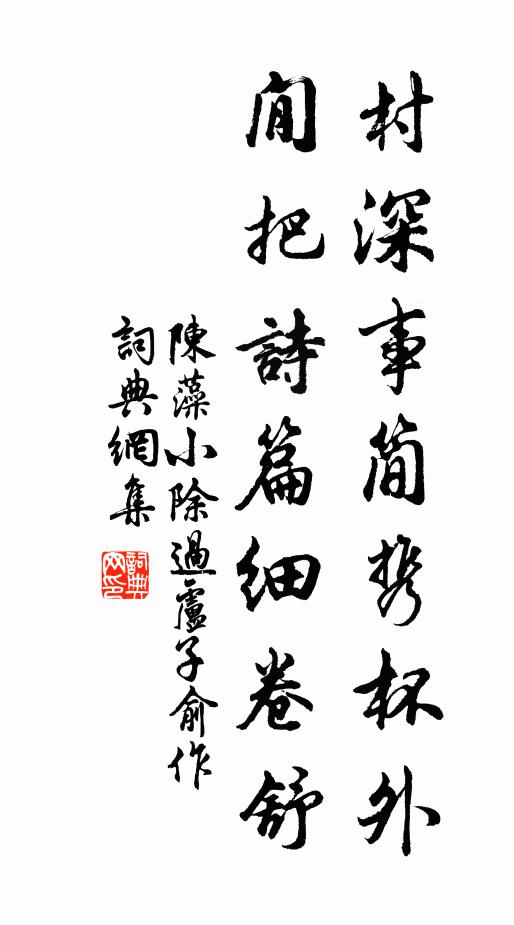 村深事简携杯外
閒把詩篇細卷舒
陳藻小除過盧子俞作
詞典網集
詞典網印